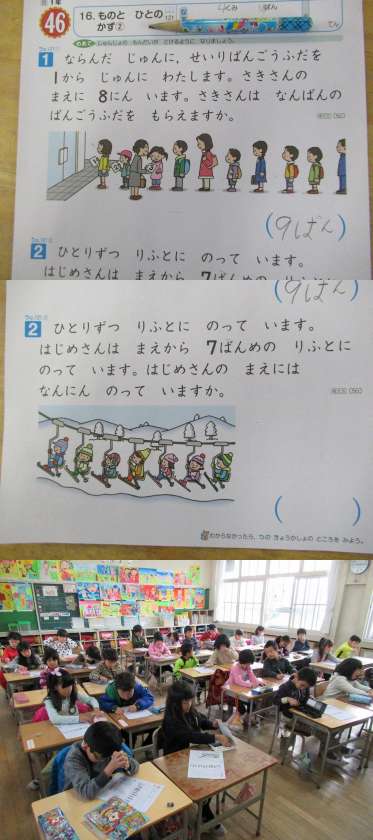 1年
46
16. ものと ひとの
かず②
てん
じゅんじょの もんだいが とけるように なりましょう。
1 ならんだ じゅんに, せいりばんごうふだを
1から じゅんに わたします。さきさんの
まえに 8にん います。さきさんは なんばんの
ばんごうふだを もらえますか。
(9ばん)
2 ひとりずつ りふとに のって います。
はじめさんは まえから 7ばんめの りふとに
(9ばん)
2 ひとりずつ りふとに のって います。
はじめさんは まえから 7ばんめの りふとに
のって います。はじめさんの まえには
なんにん のって いますか。
( )
わからなかったら, つの きょうかしょの ところを みよう。